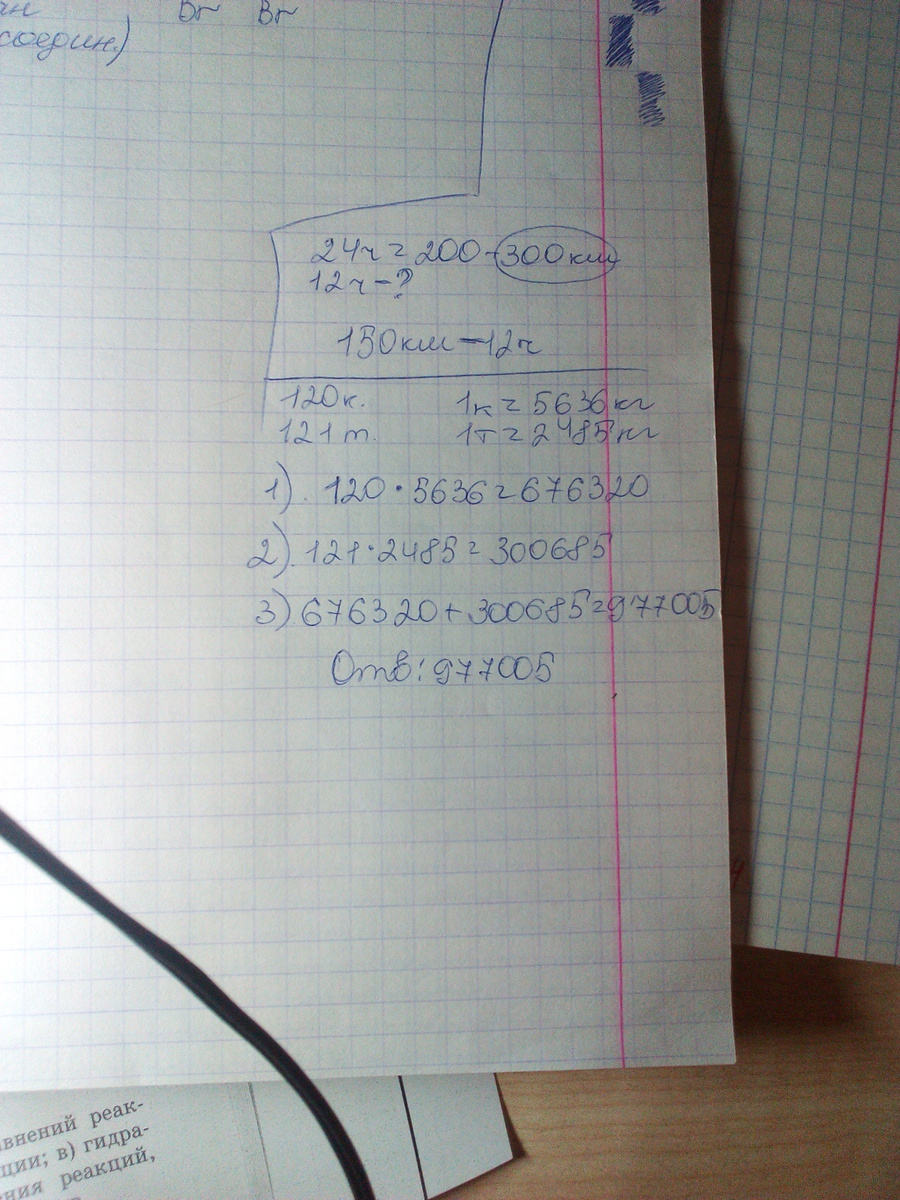 Br Br
соедин.)
24ч = 200 - 300 км
12ч - ?
150км - 12ч
120к. 1к = 5636 кг
121т. 1т = 2485 кг
1). 120 · 5636 = 676320
2). 121 · 2485 = 300685
3). 676320 + 300685 = 977005
Отв: 977005
авнений реак-
ции; в) гидра-
ния реакций,